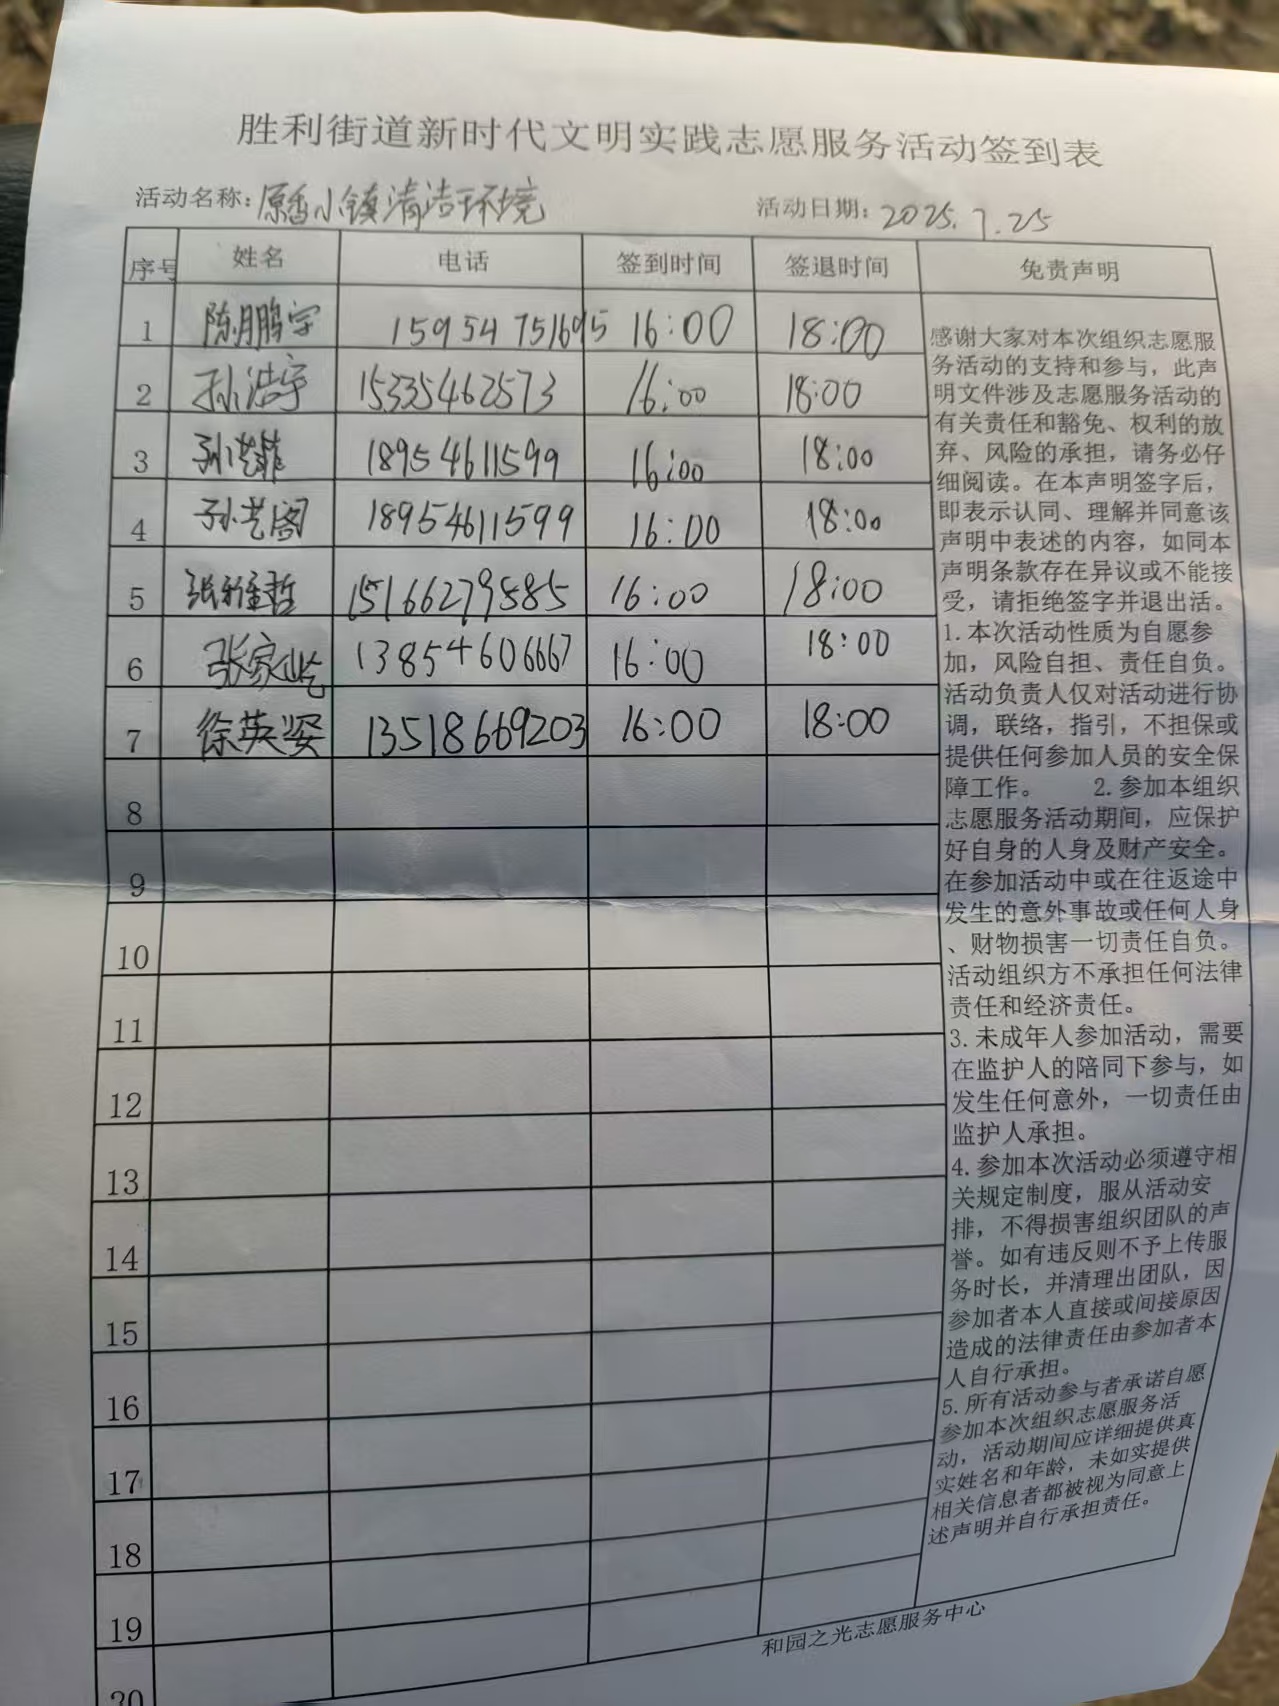 胜利街道新时代文明实践志愿服务活动签到表
活动名称：原香小镇清洁环境 活动日期：2025.7.25
序号 姓名 电话 签到时间 签退时间 免责声明
1 陈鹏宇 15954751695 16:00 18:00
2 孙浩宇 15335462573 16:00 18:00
3 孙艺菲 18954611599 16:00 18:00
4 孙艺阁 18954611599 16:00 18:00
5 张 哲 15166279585 16:00 18:00
6 张家屹 13854606667 16:00 18:00
7 徐英姿 13518669203 16:00 18:00
8
9
10
11
12
13
14
15
16
17
18
19
20
感谢大家对本次组织志愿服
务活动的支持和参与，此声
明文件涉及志愿服务活动的
有关责任和豁免、权利的放
弃、风险的承担，请务必仔
细阅读。在本声明签字后，
即表示认同、理解并同意该
声明中表述的内容，如同本
声明条款存在异议或不能接
受，请拒绝签字并退出活。
1.本次活动性质为自愿参
加，风险自担、责任自负。
活动负责人仅对活动进行协
调，联络，指引，不担保或
提供任何参加人员的安全保
障工作。 2.参加本组织
志愿服务活动期间，应保护
好自身的人身及财产安全。
在参加活动中或在往返途中
发生的意外事故或任何人身
、财物损害一切责任自负。
活动组织方不承担任何法律
责任和经济责任。
3.未成年人参加活动，需要
在监护人的陪同下参与，如
发生任何意外，一切责任由
监护人承担。
4.参加本次活动必须遵守相
关规定制度，服从活动安
排，不得损害组织团队的声
誉。如有违反则不予上传服
务时长，并清理出团队，因
参加者本人直接或间接原因
造成的法律责任由参加者本
人自行承担。
5.所有活动参与者承诺自愿
参加本次组织志愿服务活
动，活动期间应详细提供真
实姓名和年龄，未如实提供
相关信息者都被视为同意上
述声明并自行承担责任。
和园之光志愿服务中心